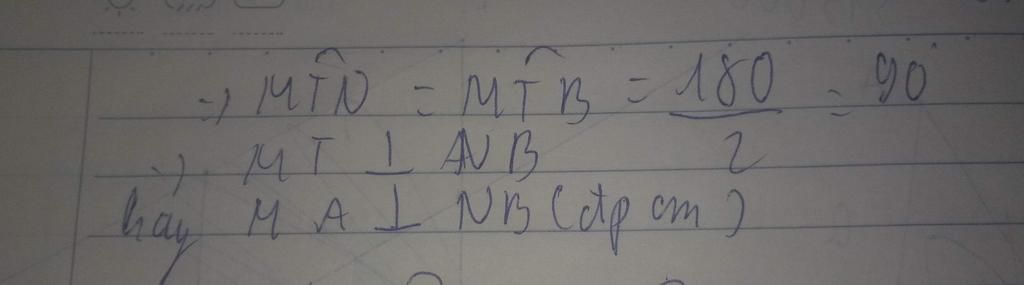 => MT̂N = MT̂B = 180/2 = 90°
=> MT ⊥ NB
hay MA ⊥ NB (đpcm)